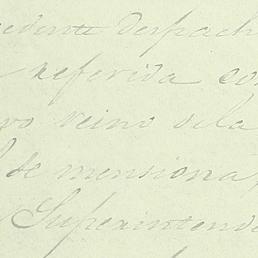 cedente despach
referida co
vo reino dela
se mensiona,
Superintend